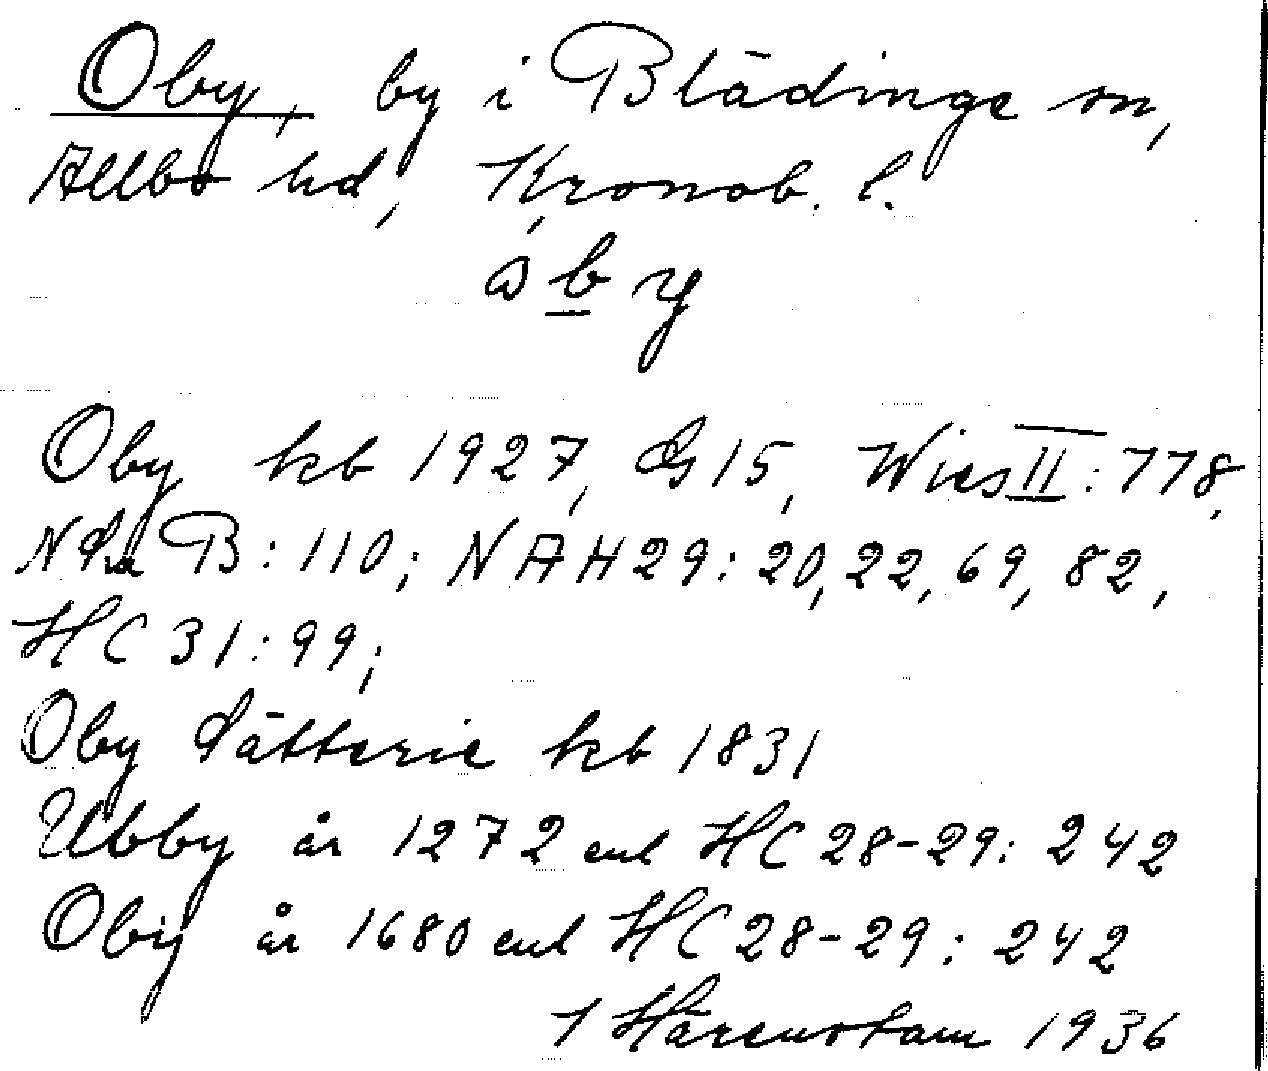 Oby, by i Blädinge sn,
Allbo hd, Kronob. l.
ɷ b y
Oby kb 1927, GS 15, Wies II: 778,
B: 110; NAH 29: 20, 22, 69, 82,
HC 31: 99;
Oby Sätterie kb 1831
Ubby år 1272 enl HC 28-29: 242
Obÿ år 1680 enl HC 28-29: 242
Härenstam 1936